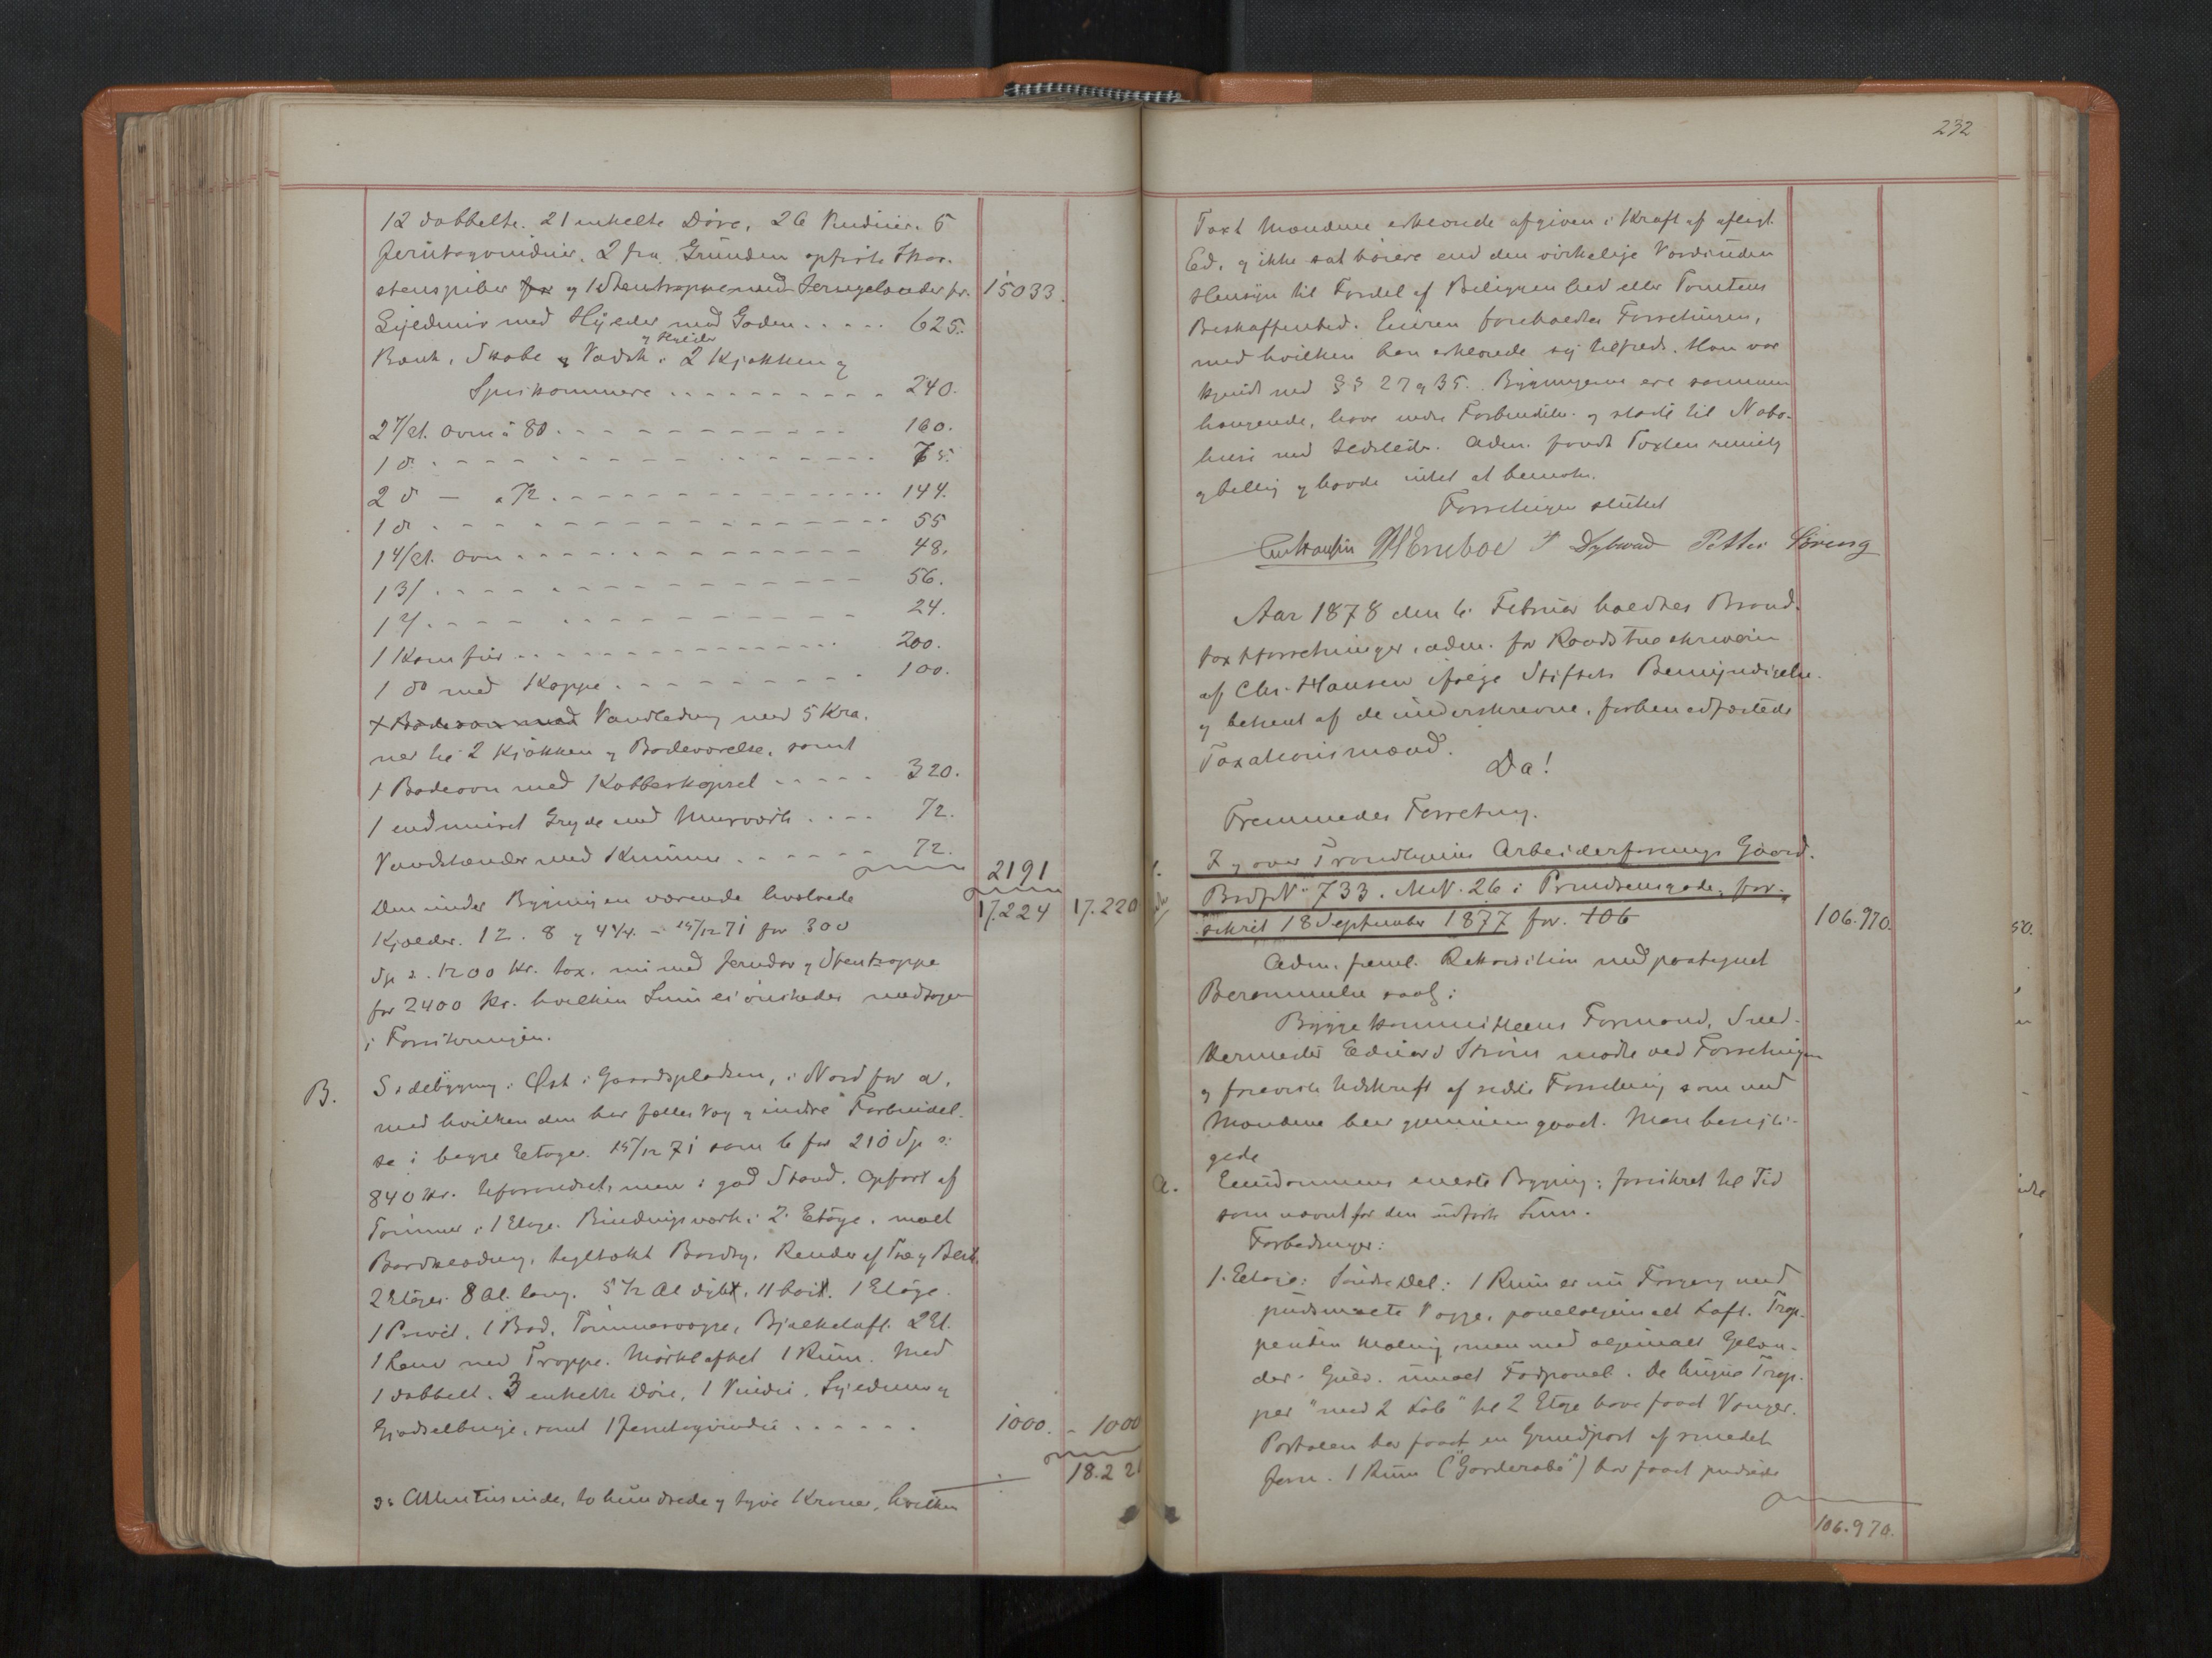 12 dobbelte. 21 enkelte Døre, 26 Vinduer. 5
Jerntagvinduer, 2 fra Grunden opførte Skor-
stenspiber for og 1 Stentrappe med Jerngelænder for 15033.
med Hylder med Goden 625.
og Hylder
Bænk, Skabe og Vadsk i 2 Kjøkken og
Spiskammere 240.
2 7/et. Ovne à 80 160.
1 do. 65.
2 do — a 72 144.
1 do 55
1 4/et. Ovn 48.
1 3/ 56.
1 2/ 24.
1 Komfür 200.
1 do med Kappe 100.
1 Badeovn med Vandledning med 5 Kra-
ner til 2 Kjøkken og Badeværelse, samt
1 Badeovn med Kobberkjedel 320.
1 indmuret Gryde med Murværk 72.
Vandstænder med Kumme 72.
2191
17.224 17.220
Den under Bygningen værende hvælvede
Kjælder. 12. 8 og 4 1/4. – 15/12 71 for 300
Sp a. 1200 Kr. tax. nu med Jerndør og Stentrappe
for 2400 Kr. hvilken Sum ei ønskedes medtagen
i Forsikringen.
B. Sidebygning i Øst i Gaardspladsen, i Nord for a,
med hvilken den har fælles Væg og indre Forbindel-
se i begge Etager. 15/12 71 som b for 210 Sp a:
840 Kr. Uforandret, men i god Stand. Opført af
Tømmer i 1 Etage. Bindingsværk i 2. Etage. malt
Bordklædning, tegltækt Bordtag. Render af Træ og Blik.
2 Etager 8 Al. lang. 5 1/2 Al dybt, 11 høit. 1 Etage.
1 Privet, 1 Bod, Tømmervægge, Bjælkeloft. 2 Et.
1 Rum med Trappe. Mørkloftet 1 Rum. Med
1 dobbelt. 3 enkelte Døre, 1 Vindue, og
Gjødselbinge, samt 1 Jerntagvindue 1000. – 1000
18.22
a: Atten Tusinde, to hundrede og tyve Kroner, hvilken
232
Taxt Mændene erklærede afgiven i Kraft af aflagt
Ed, og ikke sat høiere end den virkelige Værdi uden
Hensyn til Fordel af Beliggenhed eller Tomtens
Beskaffenhed. Eieren foreholdtes Forretningen,
med hvilken han erklærede sig tilfreds. Han var
kjendt med §§ 27 og 35. Bygningerne ere sammen-
hængende, have indre Forbindelse og støde til Nabo-
huse ved Adm. fandt Taxten rimelig
og billig og havde intet at bemærke.
Forretningen sluttet
Chr Hansen Dybwad Petter Løreng
Aar 1878 den 6. Februar holdtes Brand-
taxtforretninger, adm. for Raadstueskriveren
af Chr. Hansen ifølge Stiftets Bemyndigelse
og betjent af de underskrevne, forhen edfæstede
Taxationsmænd.
Da!
Fremmedes Forretning.
1. I og over Trondhjems Arbeiderforenings Gaard.
Brdf No 733. M.N. 26 i Prindsensgade, for-
sikret 18 September 1877 for 106 106.970.
Adm. freml. Rekvisition med paategnet
Berammelse saal:
Byggekommitteens Formand, Sned-
kermester Edvard Strøm mødte ved Forretningen
og foreviste Udskrift af sidste Forretning som med
Mændene blev gjennemgaaet. Man besigti-
gede
a. Eiendommens eneste Bygning: forsikret til Tid
som nævnt for den udførte Sum.
Forbedringer:
1. Etage: Søndre Del: 1 Rum er nu Forgang med
pudsmalte Vægge, panelet Loft. Trap-
pen uden Maling, men med oljemalt Gelæn-
der. Gulv. umalt Fodpanel. De Trap-
per "med 2 Løb" til 2 Etage have faaet Vanger.
Portalen har faaet en Grindport af smedet
Jern. 1 Rum ("Garderobe") har faaet pudsede
106.970.